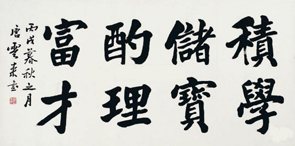 積學
儲寶
酌理
富才
丙戌暮秋之月
唐